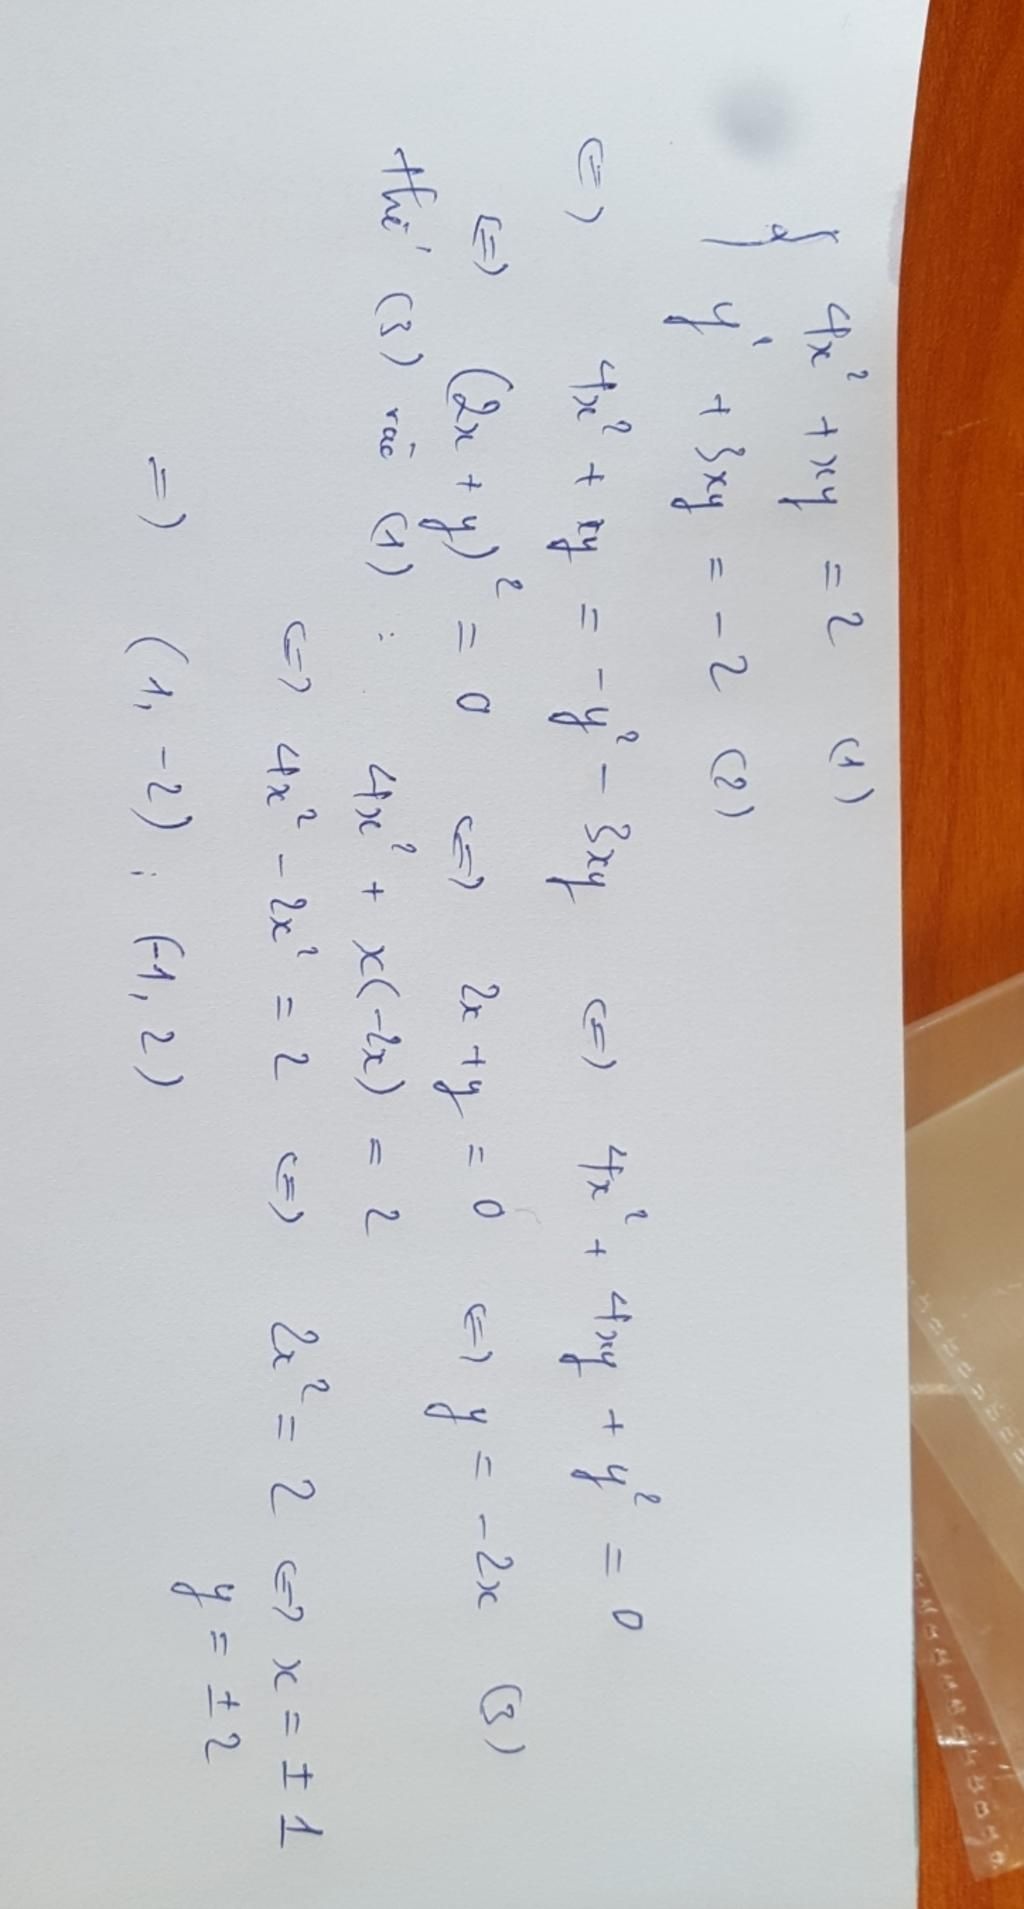 { 4x² + xy = 2 (1)
y² + 3xy = -2 (2)
<=> 4x² + xy = -y² - 3xy <=> 4x² + 4xy + y² = 0
<=> (2x + y)² = 0 <=> 2x + y = 0 <=> y = -2x (3)
thế (3) vào (1) : 4x² + x(-2x) = 2
<=> 4x² - 2x² = 2 <=> 2x² = 2 <=> x = ± 1
y = ± 2
=> (1, -2) ; (-1, 2)